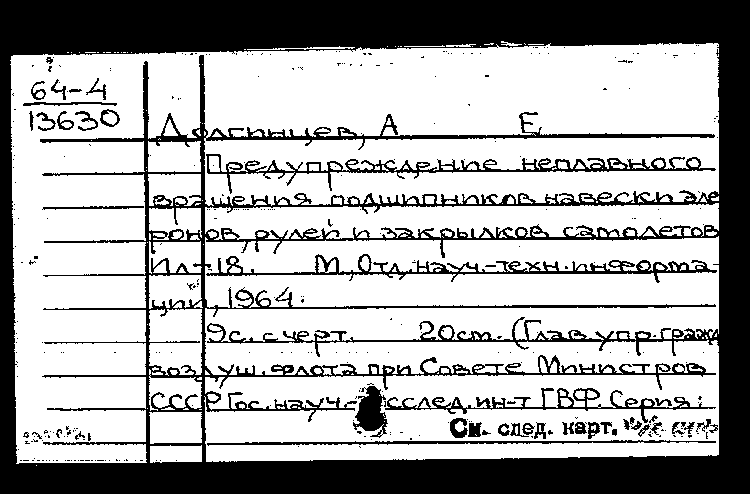 64-4
13630
Долгинцев, А Е
Предупреждение неплавного
вращения подшипников навески эле
ронов, рулей и закрылков самолетов
Ил-18. М., Отд. науч.-техн. информа-
ции, 1964.
9с. с черт. 20см. (Глав. упр. гражд.
воздуш. флота при Совете Министров
СССР. Гос. науч.-исслед. ин-т ГВФ. Серия:
См. след. карт.